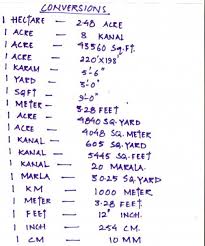 CONVERSIONS.
1 HECTARE — 2.48 ACRE
1 ACRE — 8 KANAL
1 ACRE — 43560 SQ.FT.
1 ACRE — 220'X198'
1 KARAM — 5'-6"
1 YARD — 3'-0"
1 SQFT — 9'-0"
1 METER — 3.28 FEET
1 ACRE — 4840 SQ.YARD
1 ACRE — 4048 SQ.METER
1 KANAL — 605 SQ.YARD
1 KANAL — 5445 SQ.FEET
1 KANAL — 20 MARALA.
1 MARLA — 30.25 SQ.YARD
1 KM — 1000 METER
1 METER — 3.28 FEET
1 FEET — 12" INCH.
1 INCH — 2.54 CM.
1 CM — 10 MM